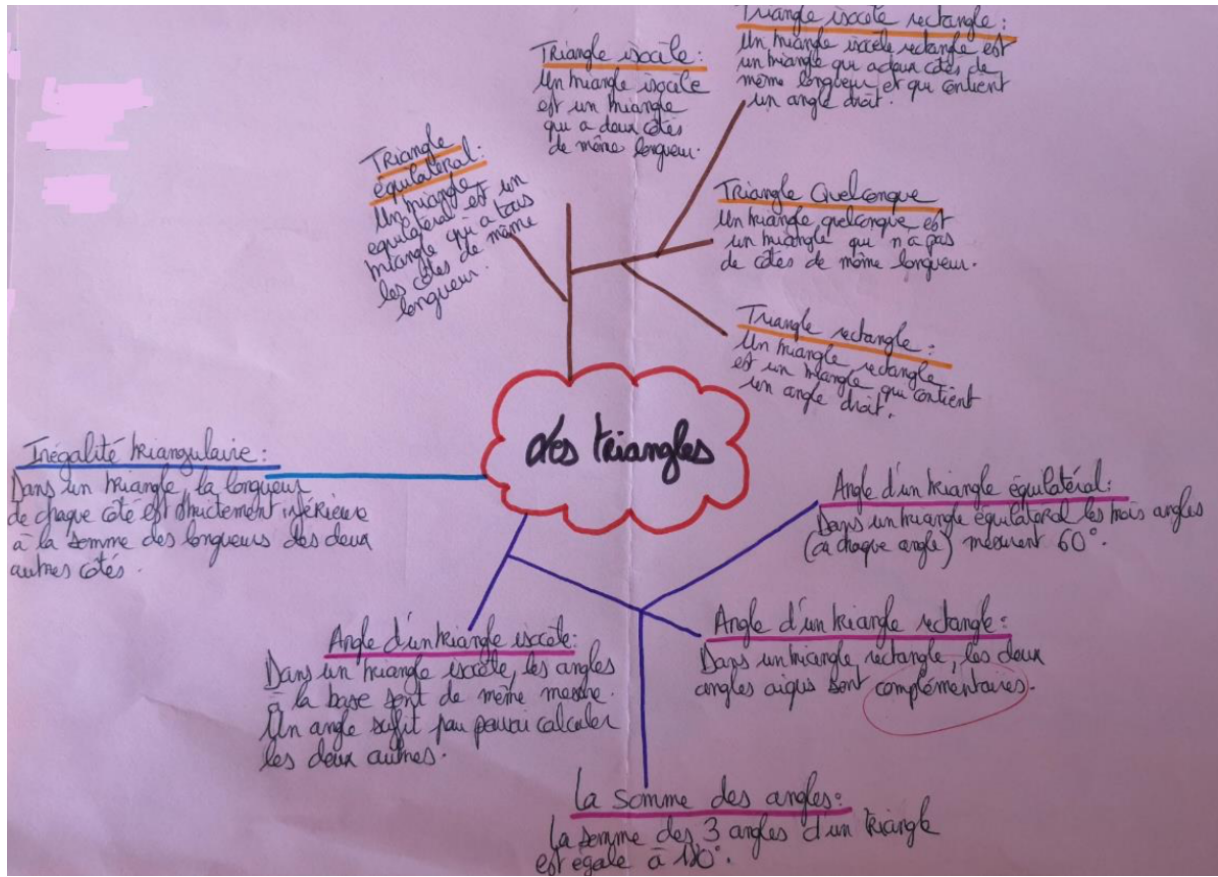 Triangle isocèle rectangle :
Un triangle isocèle rectangle est
un triangle qui a deux côtés de
même longueur et qui contient
un angle droit.
Triangle isocèle :
Un triangle isocèle
est un triangle
qui a deux côtés
de même longueur.
Triangle
équilatéral :
Un triangle
équilatéral est un
triangle qui a tous
les côtés de même
longueur.
Triangle Quelconque
Un triangle quelconque est
un triangle qui n'a pas
de côtés de même longueur.
Triangle rectangle :
Un triangle rectangle
est un triangle qui contient
un angle droit.
Les triangles
Inégalité triangulaire :
Dans un triangle, la longueur
de chaque côté est strictement inférieure
à la somme des longueurs des deux
autres côtés.
Angle d'un triangle équilatéral :
Dans un triangle équilatéral les trois angles
chaque angle) mesurent 60°.
Angle d'un triangle rectangle :
Dans un triangle rectangle, les deux
angles aigus sont complémentaires.
Angle d'un triangle isocèle :
Dans un triangle isocèle, les angles
à la base sont de même mesure.
Un angle sufit pour calculer
les deux autres.
La somme des angles :
La somme des 3 angles d'un triangle
est égale à 180°.